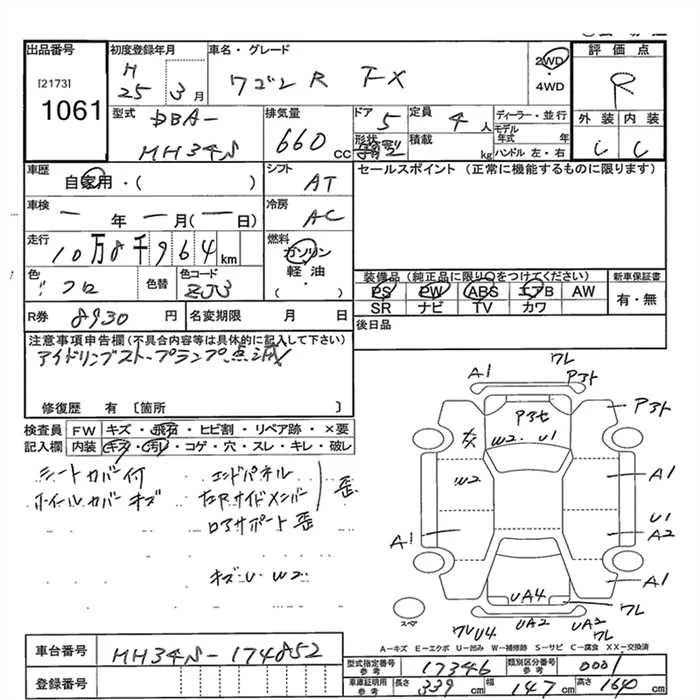 出品番号
[2173]
1061
初度登録年月
H 25 年 3 月
車名・グレード
ワゴンR FX
2WD
・
4WD
評価点
R
外装 内装
C C
型式
DBA-
MH34S
排気量
660 CC
ドア
5
形状
定員
4 人
積載
kg
ディーラー・並行
モデル
年式 年
ハンドル 左・右
車歴
自家用・( )
シフト
AT
セールスポイント (正常に機能するものに限ります)
車検
一 年 一 月(一日)
冷房
AC
走行
10万8千964 km
燃料
ガソリン
軽油
・( )
色
クロ
色替
色コード
ZJ3
装備品(純正品に限り○をつけてください)
PS PW ABS エアB AW
SR ナビ TV カワ
新車保証書
有・無
R券 8930 円
名変期限 月 日
後日品
注意事項申告欄(不具合内容等は具体的に記入して下さい)
アイドリングストップランプ点滅
修復歴 有〔箇所 〕
検査員 FW キズ・飛石・ヒビ割・リペア跡・×要
記入欄 内装 キズ・汚レ・コゲ・穴・スレ・キレ・破レ
シートカバー付
ホイールカバーキズ
エンドパネル
左Rサイドメンバー
ロアサポート 歪
歪
キズU W2
A1
ワレ
Pアト
Pアト
Pアセ
W2 U1
W2
A1
U1
A2
A1
A1
UA4
ワレ
ワレU4
UA2
UA2
ワレ
スペア
A－キズ E－エクボ U－凹み W－補修跡 S－サビ C－腐食 XX－交換済
車台番号
MH34S-174852
登録番号
型式指定番号
参考
17346
類別区分番号
参考
0001
車庫証明用
参考
長さ 339 cm
幅 147 cm
高さ 1640 cm